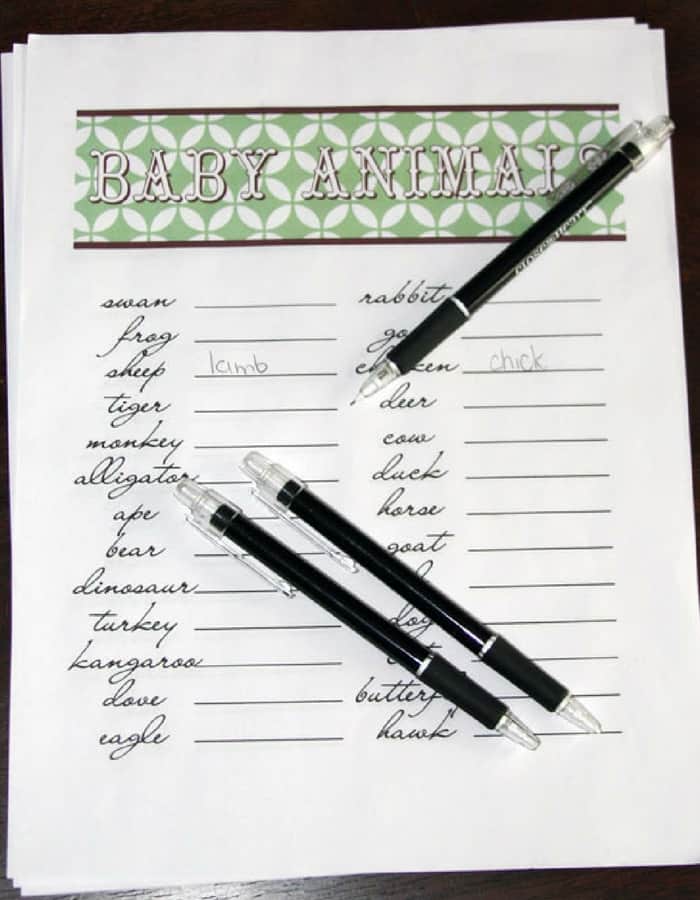 BABY ANIMALS
swan
frog
sheep lamb
tiger
monkey
alligator
ape
bear
dinosaur
turkey
kangaroo
dove
eagle
rabbit
chicken chick
deer
cow
duck
horse
goat
dog
butterfly
hawk